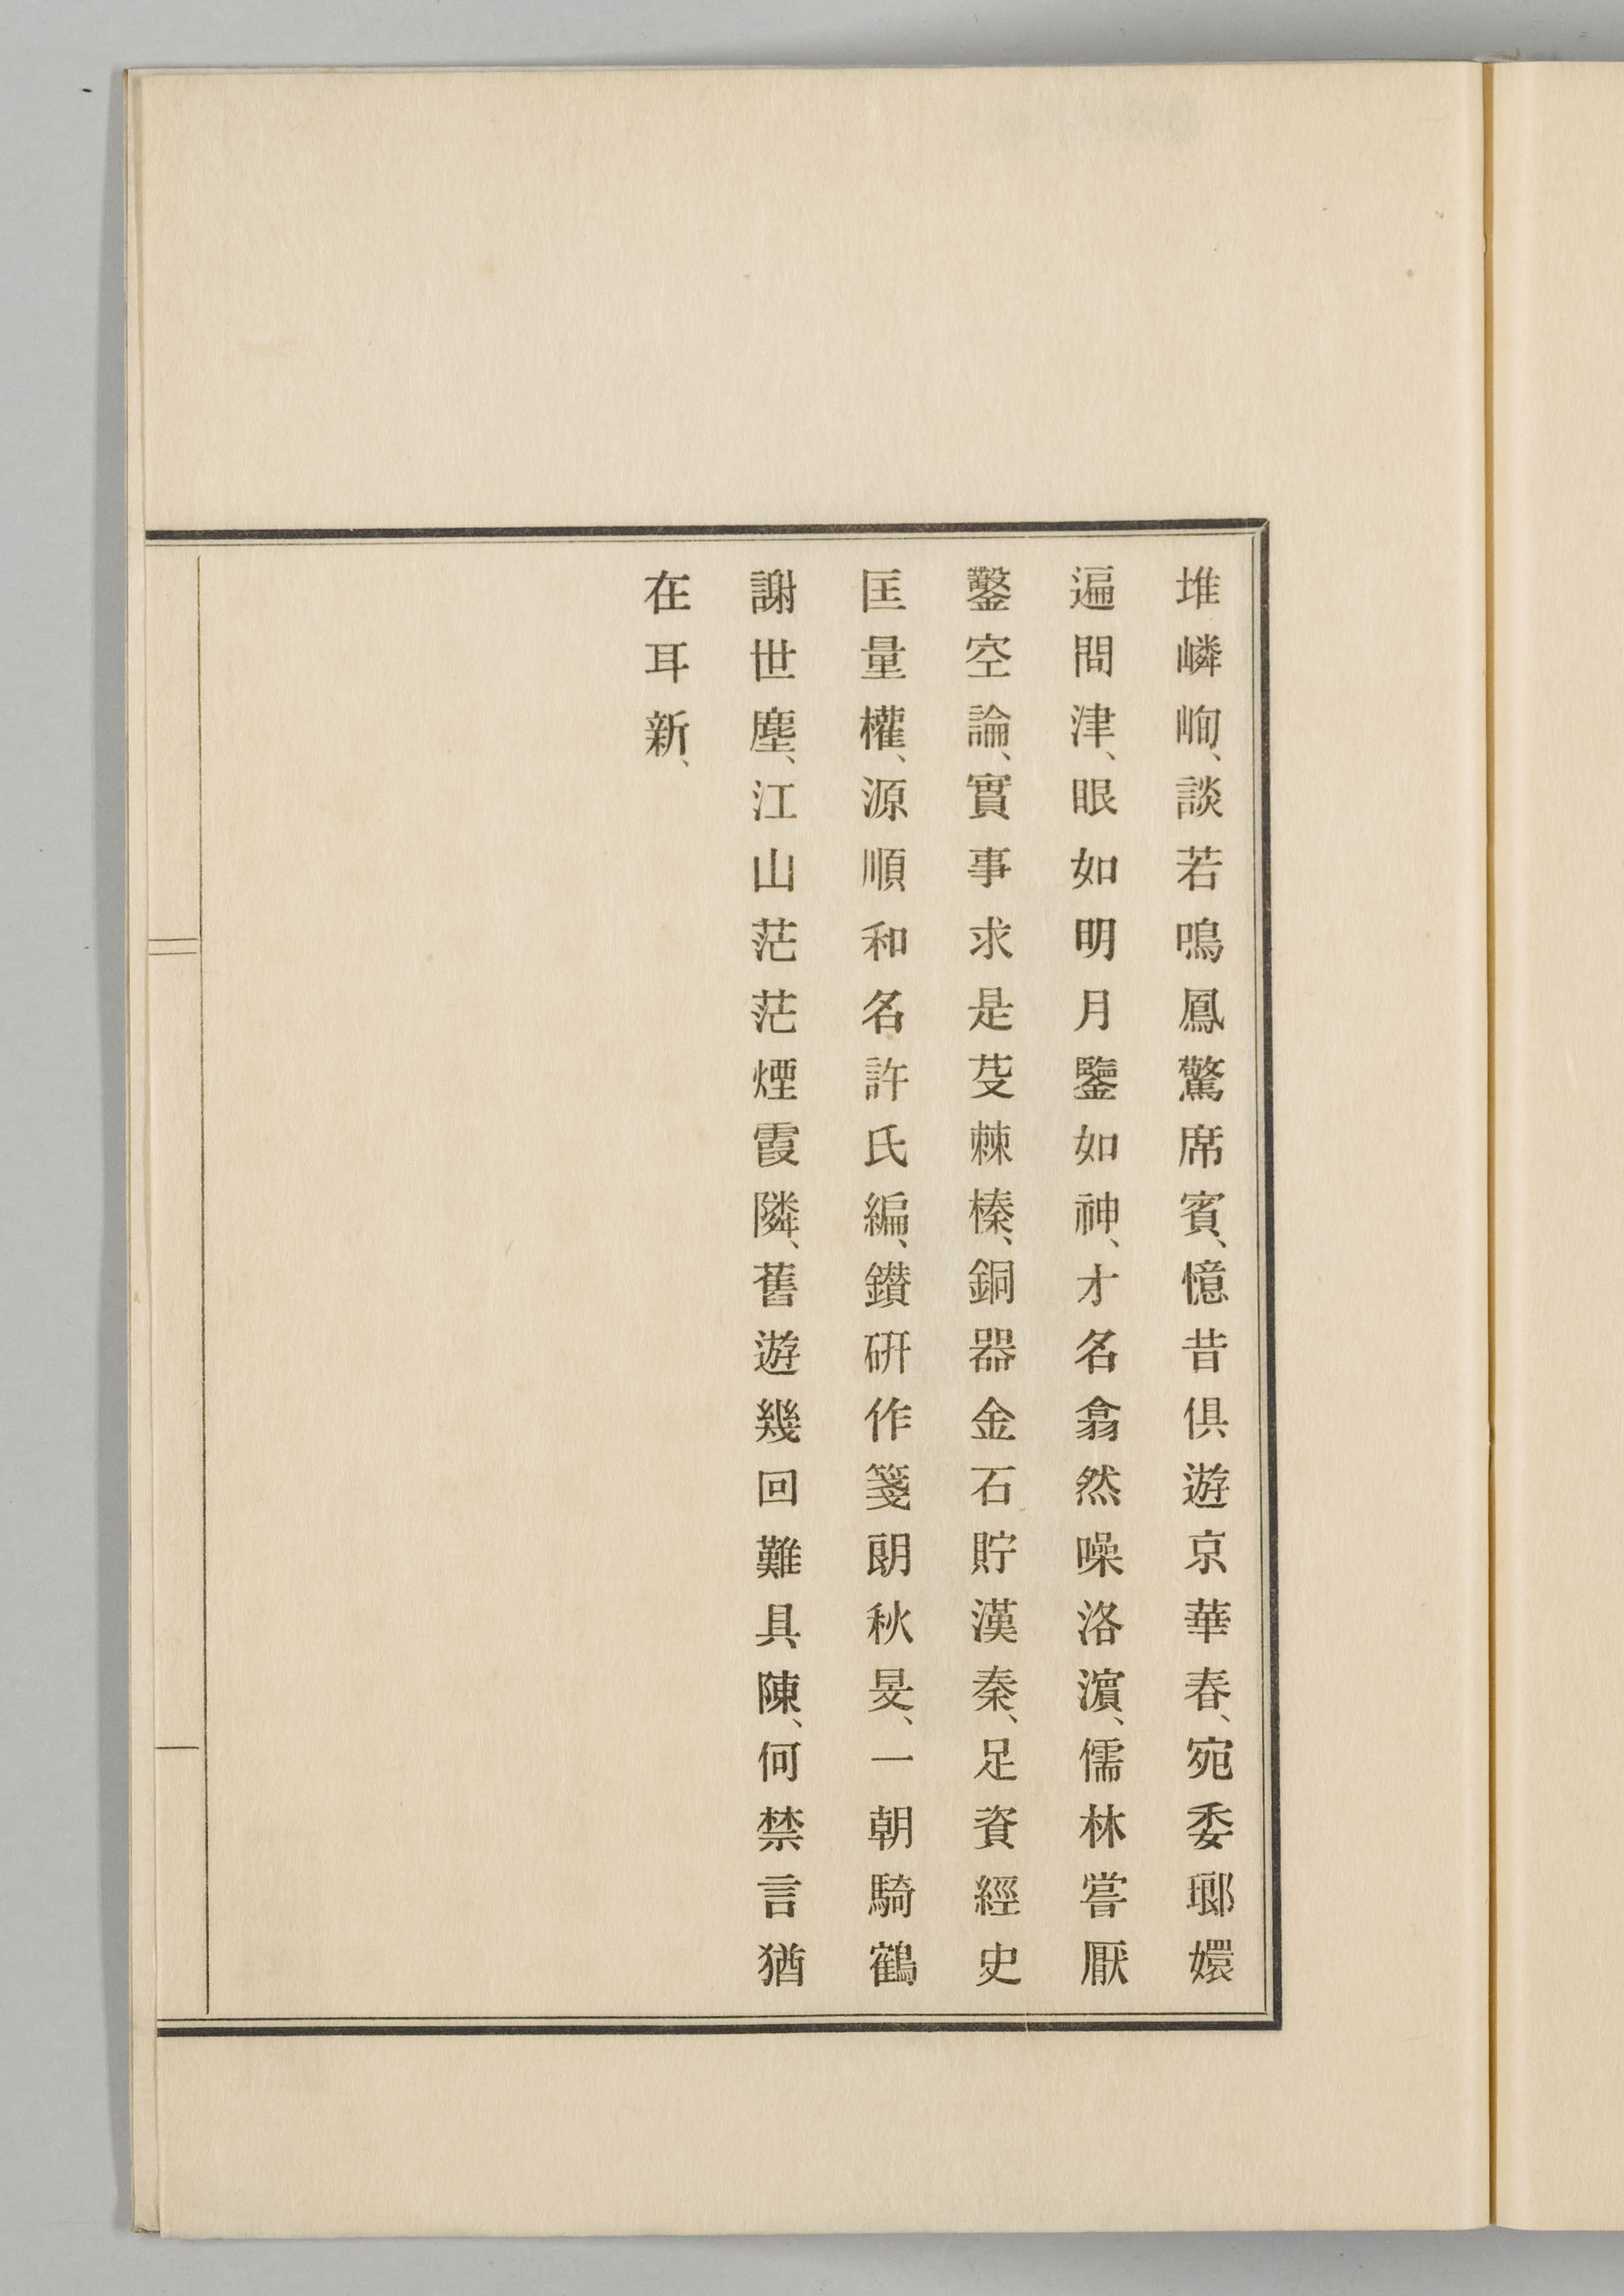 堆嶙峋、談若鳴鳳驚席賓、憶昔俱遊京華春、宛委瑯嬛
遍問津、眼如明月鑒如神、才名翕然噪洛濵、儒林嘗厭
鑿空論、實事求是芟棘榛、銅器金石貯漢秦、足資經史
匡量權、源順和名許氏編、鑚硏作箋朗秋旻、一朝騎鶴
謝世塵、江山茫茫煙霞隣、舊遊幾回難具陳、何禁言猶
在耳新、